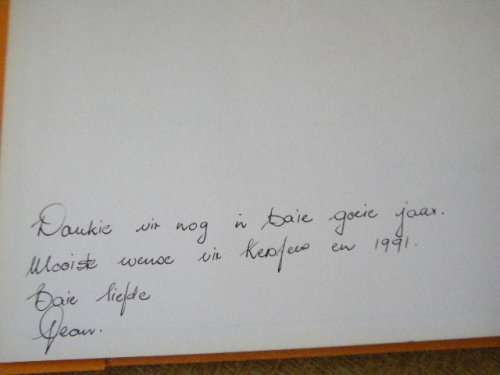 Dankie vir nog 'n baie goeie jaar.
Mooiste wense vir Kersfees en 1991.
Baie liefde